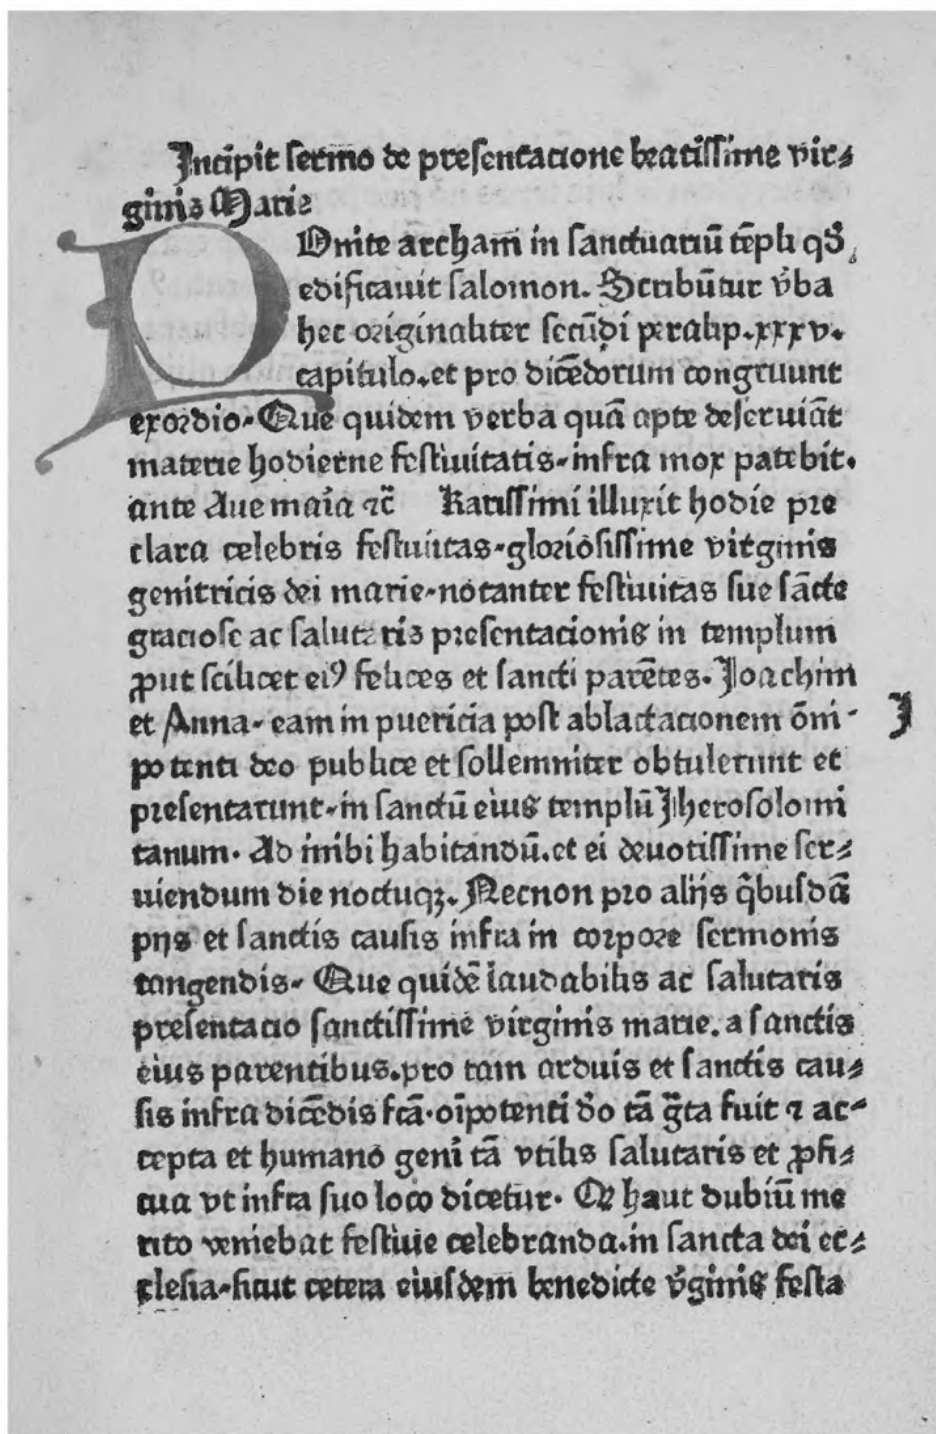 Incipit sermo de presentacione beatissime vir⸗
ginis Marie
POnite archam in sanctuariū tēpli qđ
edificauit salomon. Scribūtur v̄ba
hec originaliter secūdi paralip.xxxv.
capitulo.et pro dicēdorum congruunt
exordio. Que quidem verba quā apte deseruiāt
materie hodierne festiuitatis.infra mox patebit.
ante Aue maīa ⁊c̄ Karissimi illuxit hodie pre
clara celebris festiuitas.gloriosissime virginis
genitricis dei marie.notanter festiuitas sue sācte
graciose ac salutaris presentacionis in templum
ꝓut scilicet eiꝰ felices et sancti parētes. Joachim
et Anna. eam in puericia post ablactacionem ōni⸗
potenti deo publice et sollemniter obtulerunt et
presentarunt.in sanctū eius templū Jherosolomi
tanum. Ad inibi habitandū.et ei deuotissime ser⸗
uiendum die noctuqꝫ. Necnon pro alijs q̄busdā
pijs et sanctis causis infra in corpore sermonis
tangendis. Que quidē laudabilis ac salutaris
presentacio sanctissime virginis marie. a sanctis
eius parentibus.pro tam arduis et sanctis cau⸗
sis infra dicēdis fcā.oīpotenti dō tā g̃ta fuit ⁊ ac⸗
cepta et humano geni tā vtilis salutaris et ꝓfi⸗
cua vt infra suo loco dicetur. Qꝛ haut dubiū me
rito veniebat festiuie celebranda.in sancta dei ec⸗
clesia.sicut cetera eiusdem benedicte v̄ginis festa
J